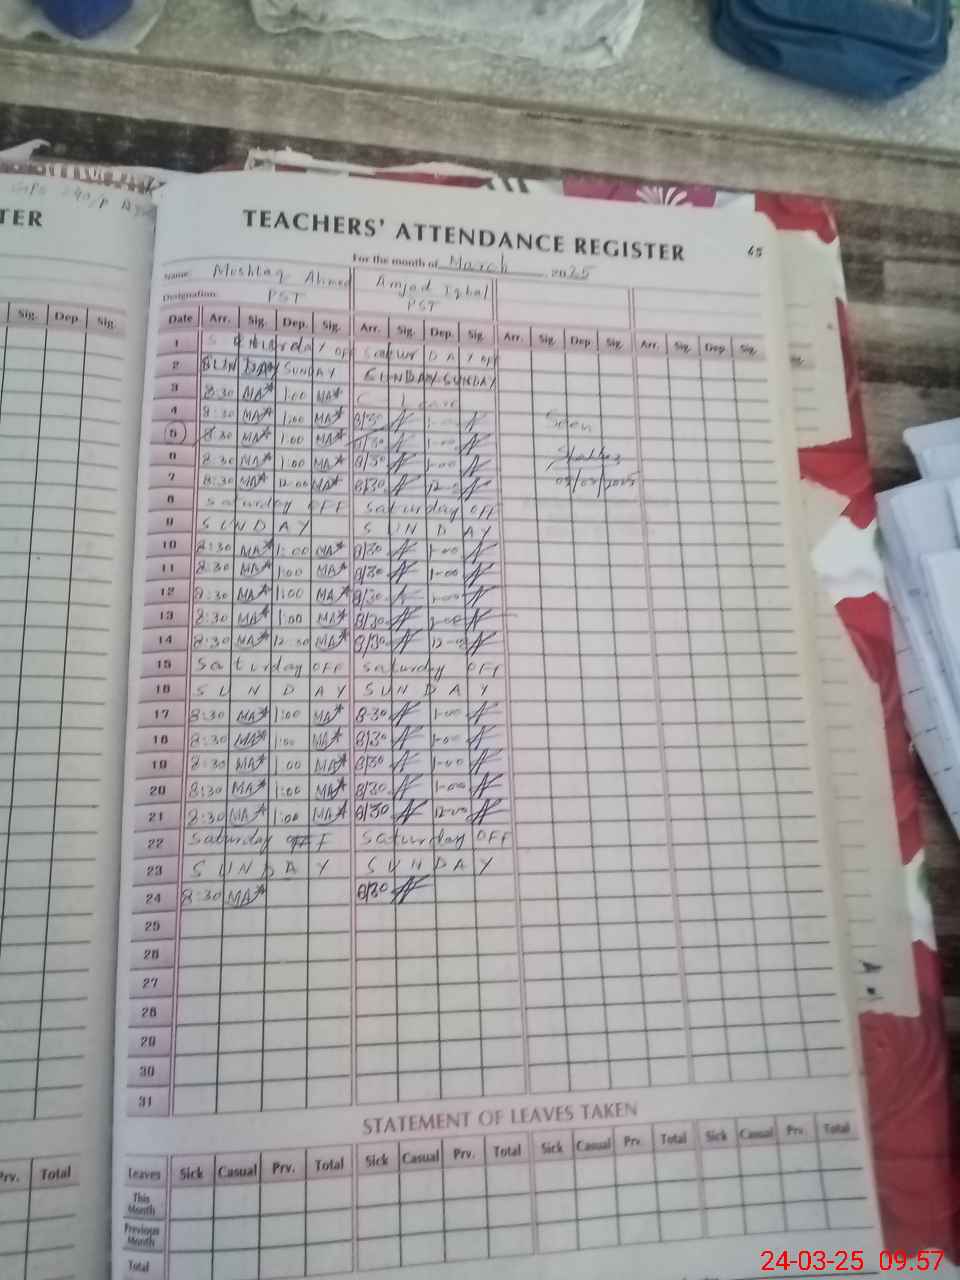 TER
TEACHERS' ATTENDANCE REGISTER 65
For the month of March 2025
Name: Moshtaq Ahmed Amjad Iqbal
Designation: PST PST
Sig. Dep. Sig.
Date Arr. Sig. Dep. Sig. Arr. Sig. Dep. Sig. Arr. Sig. Dep. Sig. Arr. Sig. Dep. Sig.
1 Saturday OFF Saturday OFF
2 SUNDAY SUNDAY SUNDAY SUNDAY
3 8:30 MA 1:00 MA C Leave
4 8:30 MA 1:00 MA 8/30 1-00 Seen
5 8:30 MA 1:00 MA 8/30 1-00
6 8:30 MA 1:00 MA 8/30 1-00
7 8:30 MA 12-00 MA 8/30 12-0
8 Saturday OFF Saturday OFF
9 SUNDAY SUNDAY
10 8:30 MA 1:00 MA 8/30 1-00
11 8:30 MA 1:00 MA 8/30 1-00
12 8:30 MA 1:00 MA 8/30 1-00
13 8:30 MA 1:00 MA 8/30 1-00
14 8:30 MA 12-30 MA 8/30 12-00
15 Saturday OFF Saturday OFF
16 SUNDAY SUNDAY
17 8:30 MA 1:00 MA 8-30 1-00
18 8:30 MA 1:00 MA 8/30 1-00
19 8:30 MA 1:00 MA 8/30 1-00
20 8:30 MA 1:00 MA 8/30 1-00
21 8:30 MA 1:00 MA 8/30 12-00
22 Saturday OFF Saturday OFF
23 SUNDAY SUNDAY
24 8:30 MA 8/30
25
26
27
28
29
30
31
STATEMENT OF LEAVES TAKEN
Prv. Total
Leaves Sick Casual Prv. Total Sick Casual Prv. Total Sick Casual Prv. Total Sick Casual Prv. Total
This Month
Previous Month
Total
24-03-25 09:57